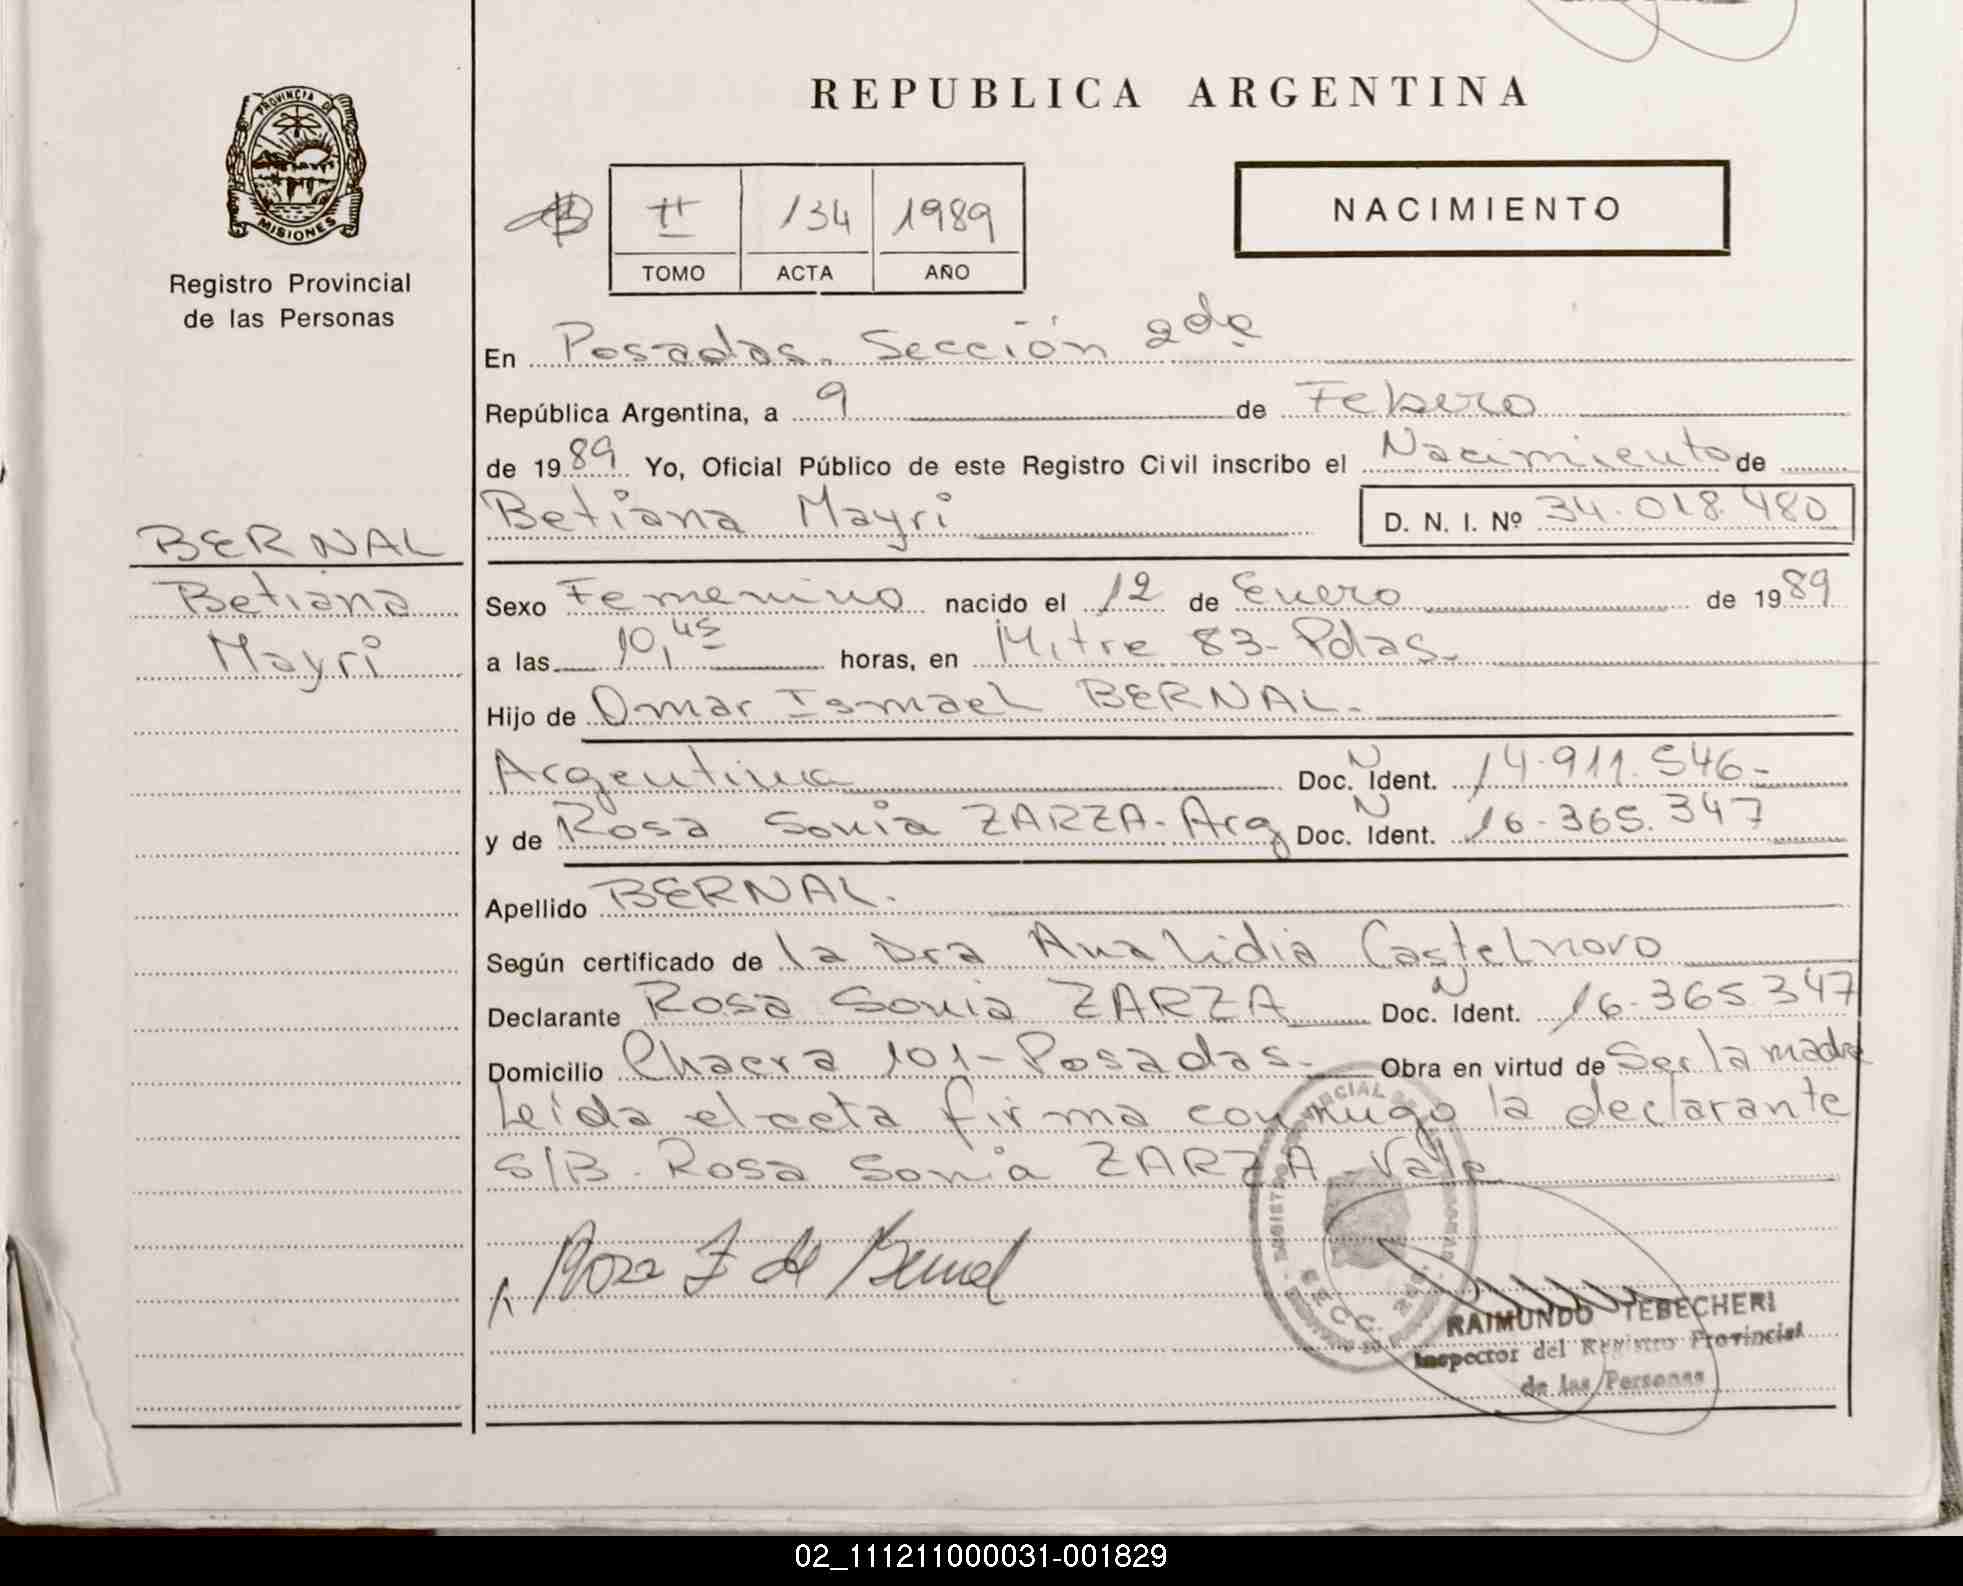 REPUBLICA ARGENTINA
PROVINCIA DE
MISIONES
Registro Provincial
de las Personas
II 134 1989
TOMO ACTA AÑO
NACIMIENTO
En Posadas. Sección 2da
República Argentina, a 9 de Febero
de 1989 Yo, Oficial Público de este Registro Civil inscribo el Nacimiento de
Betiana Mayri D. N. I. Nº 34.018.480
BERNAL
Betiana
Mayri
Sexo Femenino nacido el 12 de Enero de 1989
a las 10,45 horas, en Mitre 83- Pdas.
Hijo de Omar Ismael BERNAL.
Argentina Doc. N Ident. 14.911.546-
y de Rosa Sonia ZARZA- Arg Doc. N Ident. 16.365.347
Apellido BERNAL.
Según certificado de la Dra Ana Lidia Castelnovo
Declarante Rosa Sonia ZARZA Doc. N Ident. 16.365.347
Domicilio Chacra 101- Posadas- Obra en virtud de Ser la madre
Leída el acta firma conmigo la declarante
S/B. Rosa Sonia ZARZA -Vale
Rosa Z de Bernal
SECC. 2da.
RAIMUNDO TEBECHERI
Inspector del Registro Provincial
de las Personas
02_111211000031-001829